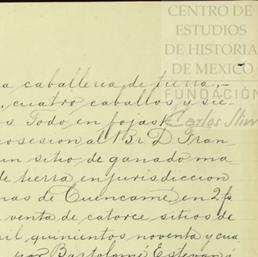 CENTRO DE
ESTUDIOS
DE HISTORIA
DE MEXICO
FUNDACIÓN
Carlos Slim
a caballeria de tierra
, cuatro caballos y sie-
s Todo en fojas
posesion al Br. D. Fran
un sitio de ganado ma
de tierra en jurisdiccion
nas de Cuencamé, en 2 f
venta de catorce sitios de
mil, quinientos noventa y cua
por Bartolomé Estevan